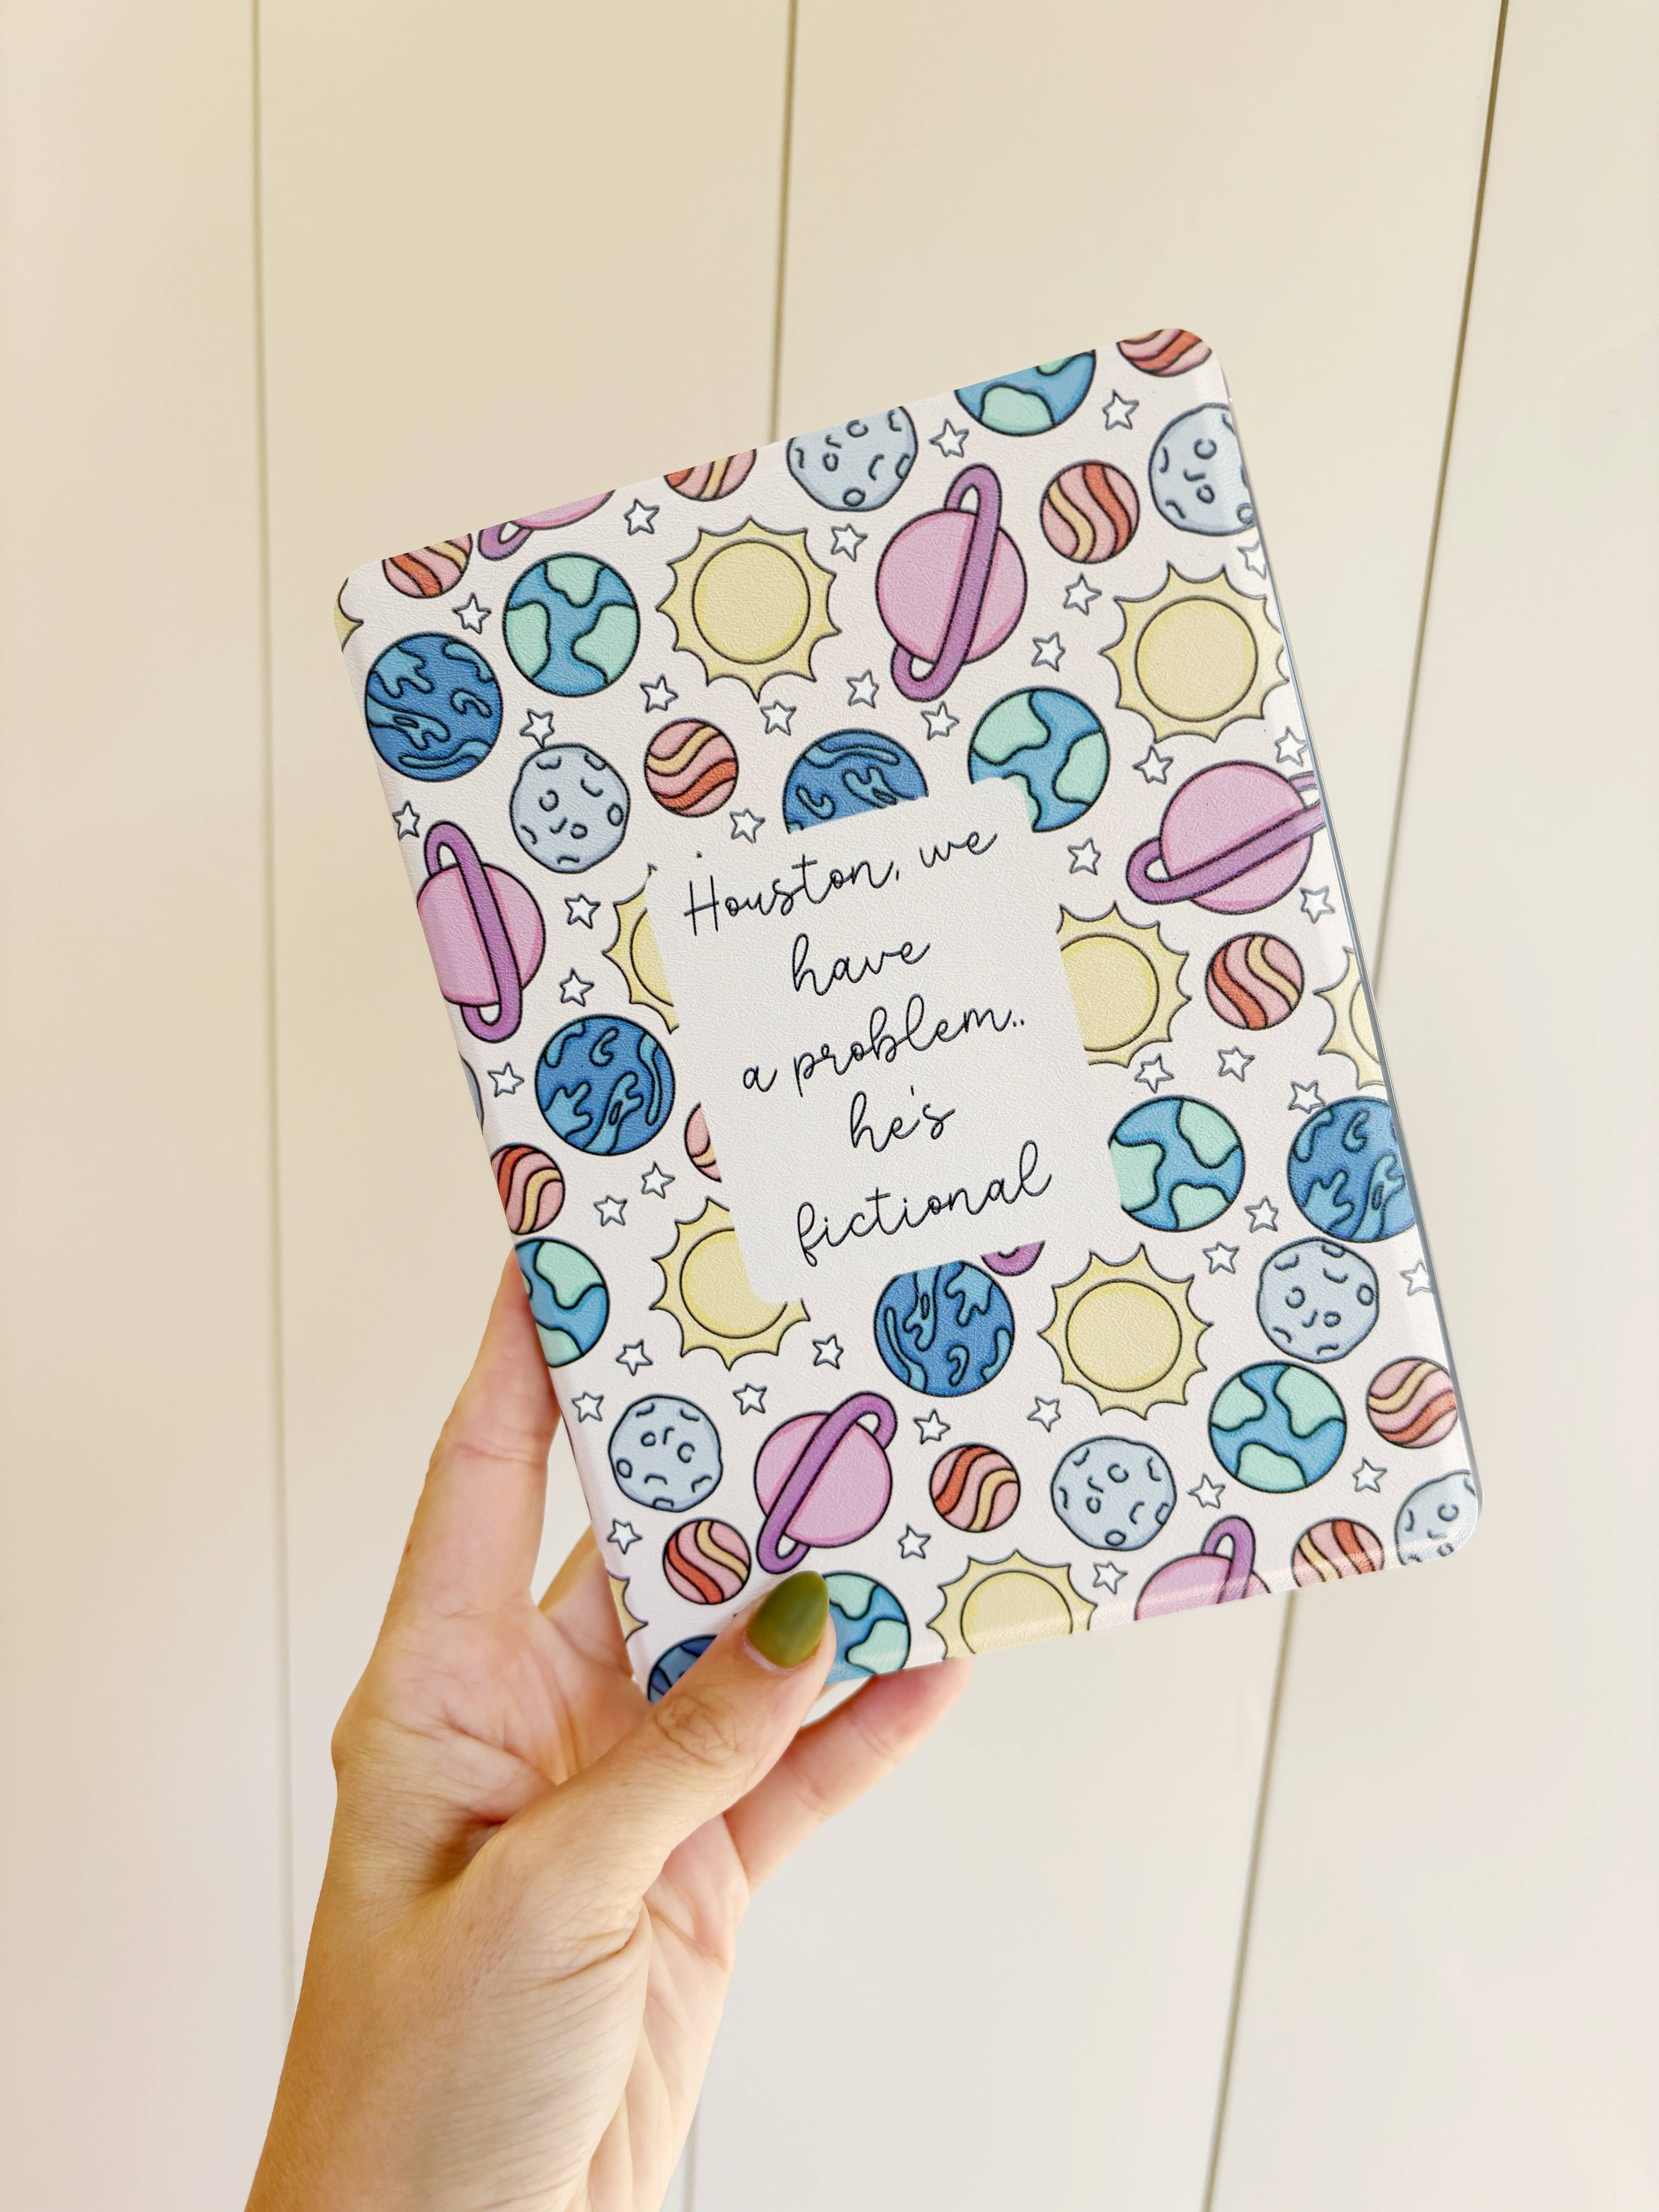 Houston, we
have
a problem..
he's
fictional